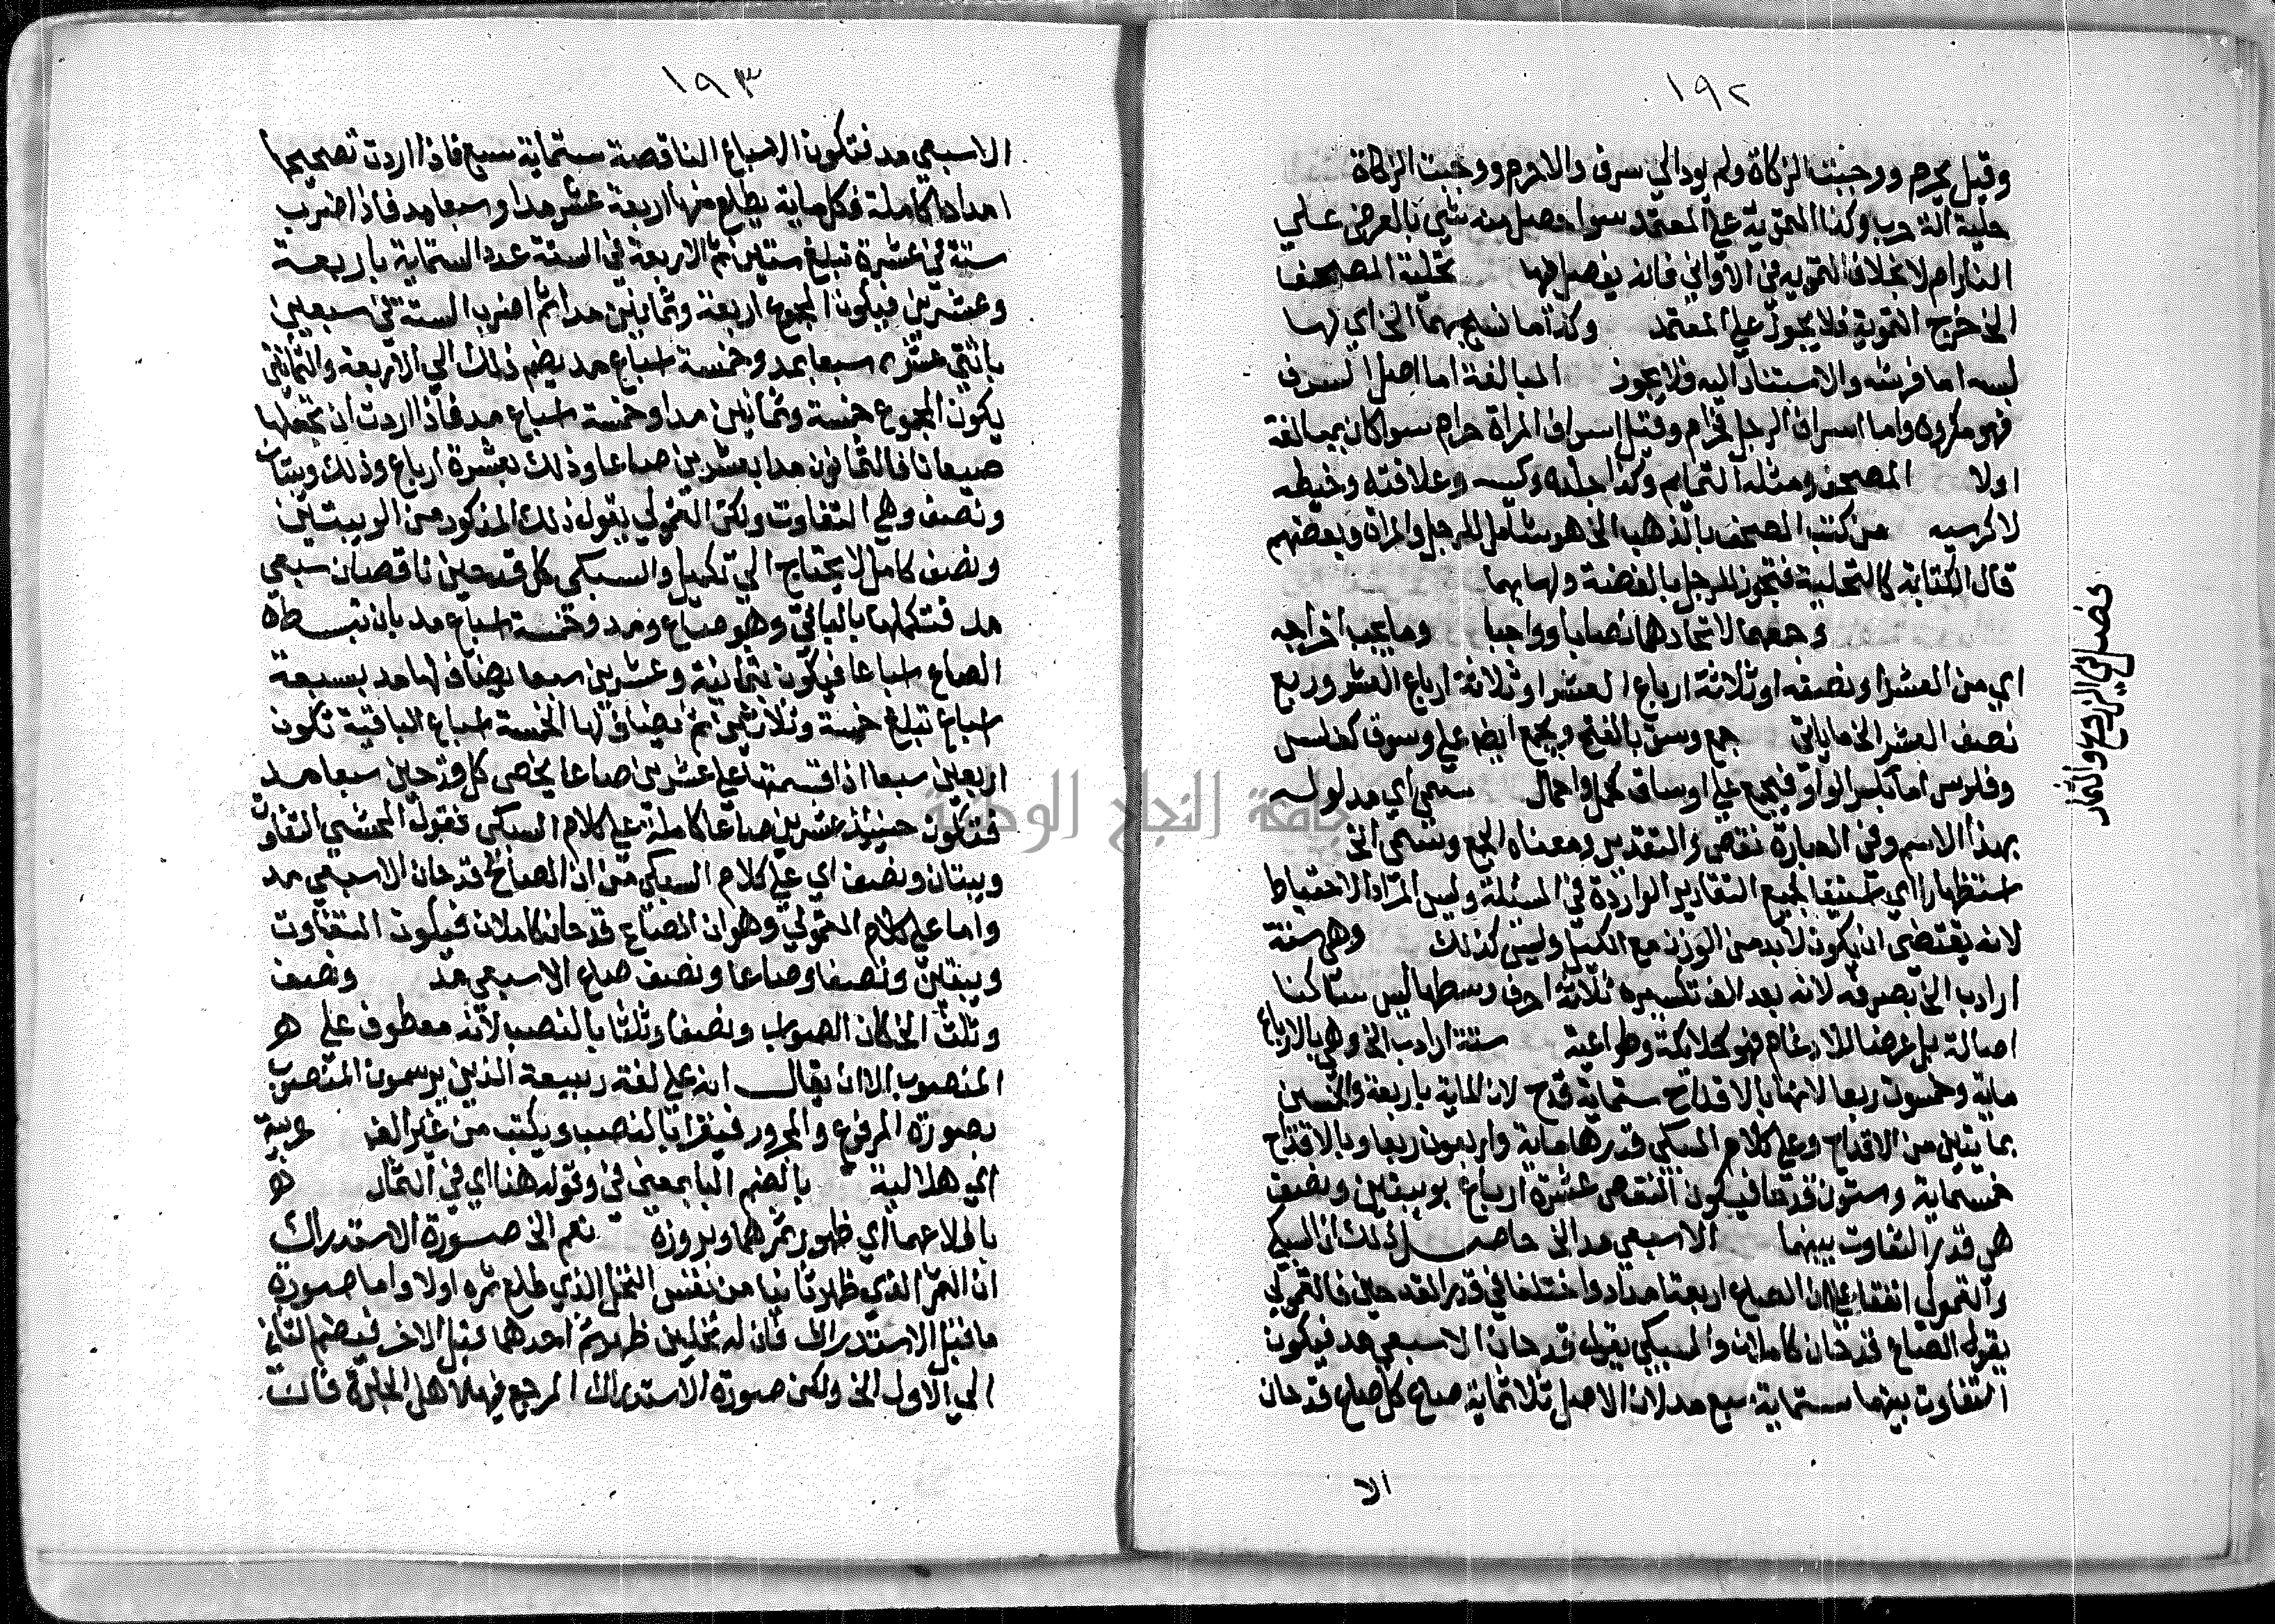 ١٩٢
وقيل يحرم ووجبت الزكاة ولم يود الي سرف والاحرم ووجبت الزكاة
حلية الة حرب وكذا التمويه علي المعتمد سوا حصل منه شي بالعرض علي
النار ام لا بخلاف التمويه في الاواني فانه يفصل فيها تحلية المصحف
الخ خرج التمويه فلا يجوز علي المعتمد وكذا ما نسج بهما الخ اي لها
لبسه اما فرشه والاستناد اليه فلا يجوز المبالغة اما اصل السرف
فهو مكروه واما اسراف الرجل فحرام وقيل اسراف المراة حرام سوا كان بمبالغة
اولا المصحف ومثله التمايم وكذا جلده وكيسه وعلاقته وخيطه
لا كرسيه من كتب المصحف بالذهب الخ هو شامل للرجل والمراة وبعضهم
قال الكتابة كالتحلية فتجوز للرجل بالفضة ولها بهما
وجمعهما لاتحادهما نصابا وواجبا وما يجب اخراجه
اي من العشر او نصفه او ثلاثة ارباع العشر او ثلاثة ارباع العشر وربع
نصف العشر الخ ما ياتي جمع وسق بالفتح ويجمع ايضا علي وسوق كفلس
وفلوس اما بكسر الواو فيجمع علي اوساق كحمل واحمال ستمي اي مدلوله
بهذا الاسم وفي العبارة نقص والتقدير ومعناه الجمع وستمي الخ
استظهارا اي استيفا لجميع التقادير الواردة في المسئلة وليس المراد الاحتياط
لانه يقتضي ان يكون لابد من الوزن مع الكيل وليس كذلك وهي ستة
ارادب الخ بصرفه لانه بعد الف تكسيره ثلاثة احرف وسطها ليس ساكنا
اصالة بل عرضا للادغام فهو كملائكة وطواعية ستة ارادب الخ وهي بالارباع
ماية وخمسون ربعا لانها بالاقداح ستماية قدح لان الماية باربعة والخمسين
بمايتين من الاقداح وعلي كلام السبكي قدرها ماية واربعون ربعا وبالاقداح
خمسماية وستون قدحا فيكون النقص عشرة ارباع بويبتين ونصف
هي قدر التفاوت بينهما الا سبعي مد الخ حاصل ذلك ان السبكي
والقمولي اتفقا علي ان الصاع اربعة امداد واختلفا في قدر القدحين فالقمولي
يقول الصاع قدحان كاملان والسبكي يقول قدحان الا سبعي مد فيكون
التفاوت بينهما ستماية سبع مد لان الاصل ثلاثماية صاع كل صاع قدحان
الا
فصل في الزروع والثمار
١٩٣
الا سبعي مد فتكون الاسباع الناقصة ستماية سبع فاذا اردت تصحيحها
امدادا كاملة فكل ماية يطلع منها اربعة عشر مدا وسبعا مد فاذا اضرب
ستة في عشرة تبلغ ستين ثم الاربعة في الستة عدد الستماية باربعة
وعشرين فيكون المجموع اربعة وثمانين مدا ثم اضرب الستة في سبعين
باثني عشر سبعا بمد وخمسة اسباع مد يضم ذلك الي الاربعة والثمانين
يكون المجموع خمسة وثمانين مدا وخمسة اسباع مد فاذا اردت ان تجعلها
صيعانا فالثمانون مدا بعشرين صاعا وذلك بعشرة ارباع وذلك ويبتان
ونصف وهي التفاوت ولكن القمولي يقول ذلك المذكور من الويبتين
ونصف كامل لا يحتاج الي تكميل والسبكي كل قدحين ناقصان سبعي
مد فتكملها بالباقي وهو صاع ومد وخمسة اسباع مد بان تبسط
الصاع اسباعا فيكون بثمانية وعشرين سبعا يضاف لها مد بسبعة
اسباع تبلغ خمسة وثلاثين ثم يضاف لها الخمسة اسباع الباقية تكون
اربعين سبعا اذا قسمتها علي عشرين صاعا يخص كل قدحين سبعا مد
فتكون حينئذ عشرين صاعا كاملة علي كلام السبكي فقول المحشي التفاوت
ويبتان ونصف اي علي كلام السبكي من ان الصاع قدحان الا سبعي مد
واما علي كلام القمولي وهو ان الصاع قدحان كاملان فيكون التفاوت
ويبتين ونصفا وصاعا ونصف صاع الا سبعي مد ونصف
وثلث الخ كان الصواب ونصفا وثلثا بالنصب لانه معطوف علي
المنصوب الا ان يقال انه علي لغة ربيعة الذين يرسمون المنصوب
بصورة المرفوع والمجرور فيقرا بالنصب ويكتب من غير الف عربية
اي هلالية بالضم البا بمعني في وقوله هنا اي في الثمار
باطلاعهما اي ظهور ثمرهما وبروزه نعم الخ صورة الاستدراك
ان الثمر الذي ظهر ثانيا من نفس النخل الذي طلع ثمره اولا واما صورة
ما قبل الاستدراك فان له نخلين ظهر ثمر احدهما قبل الاخر فيضم الثاني
الي الاول الخ ولكن صورة الاستدراك المرجع فيها لاهل الخبرة فان